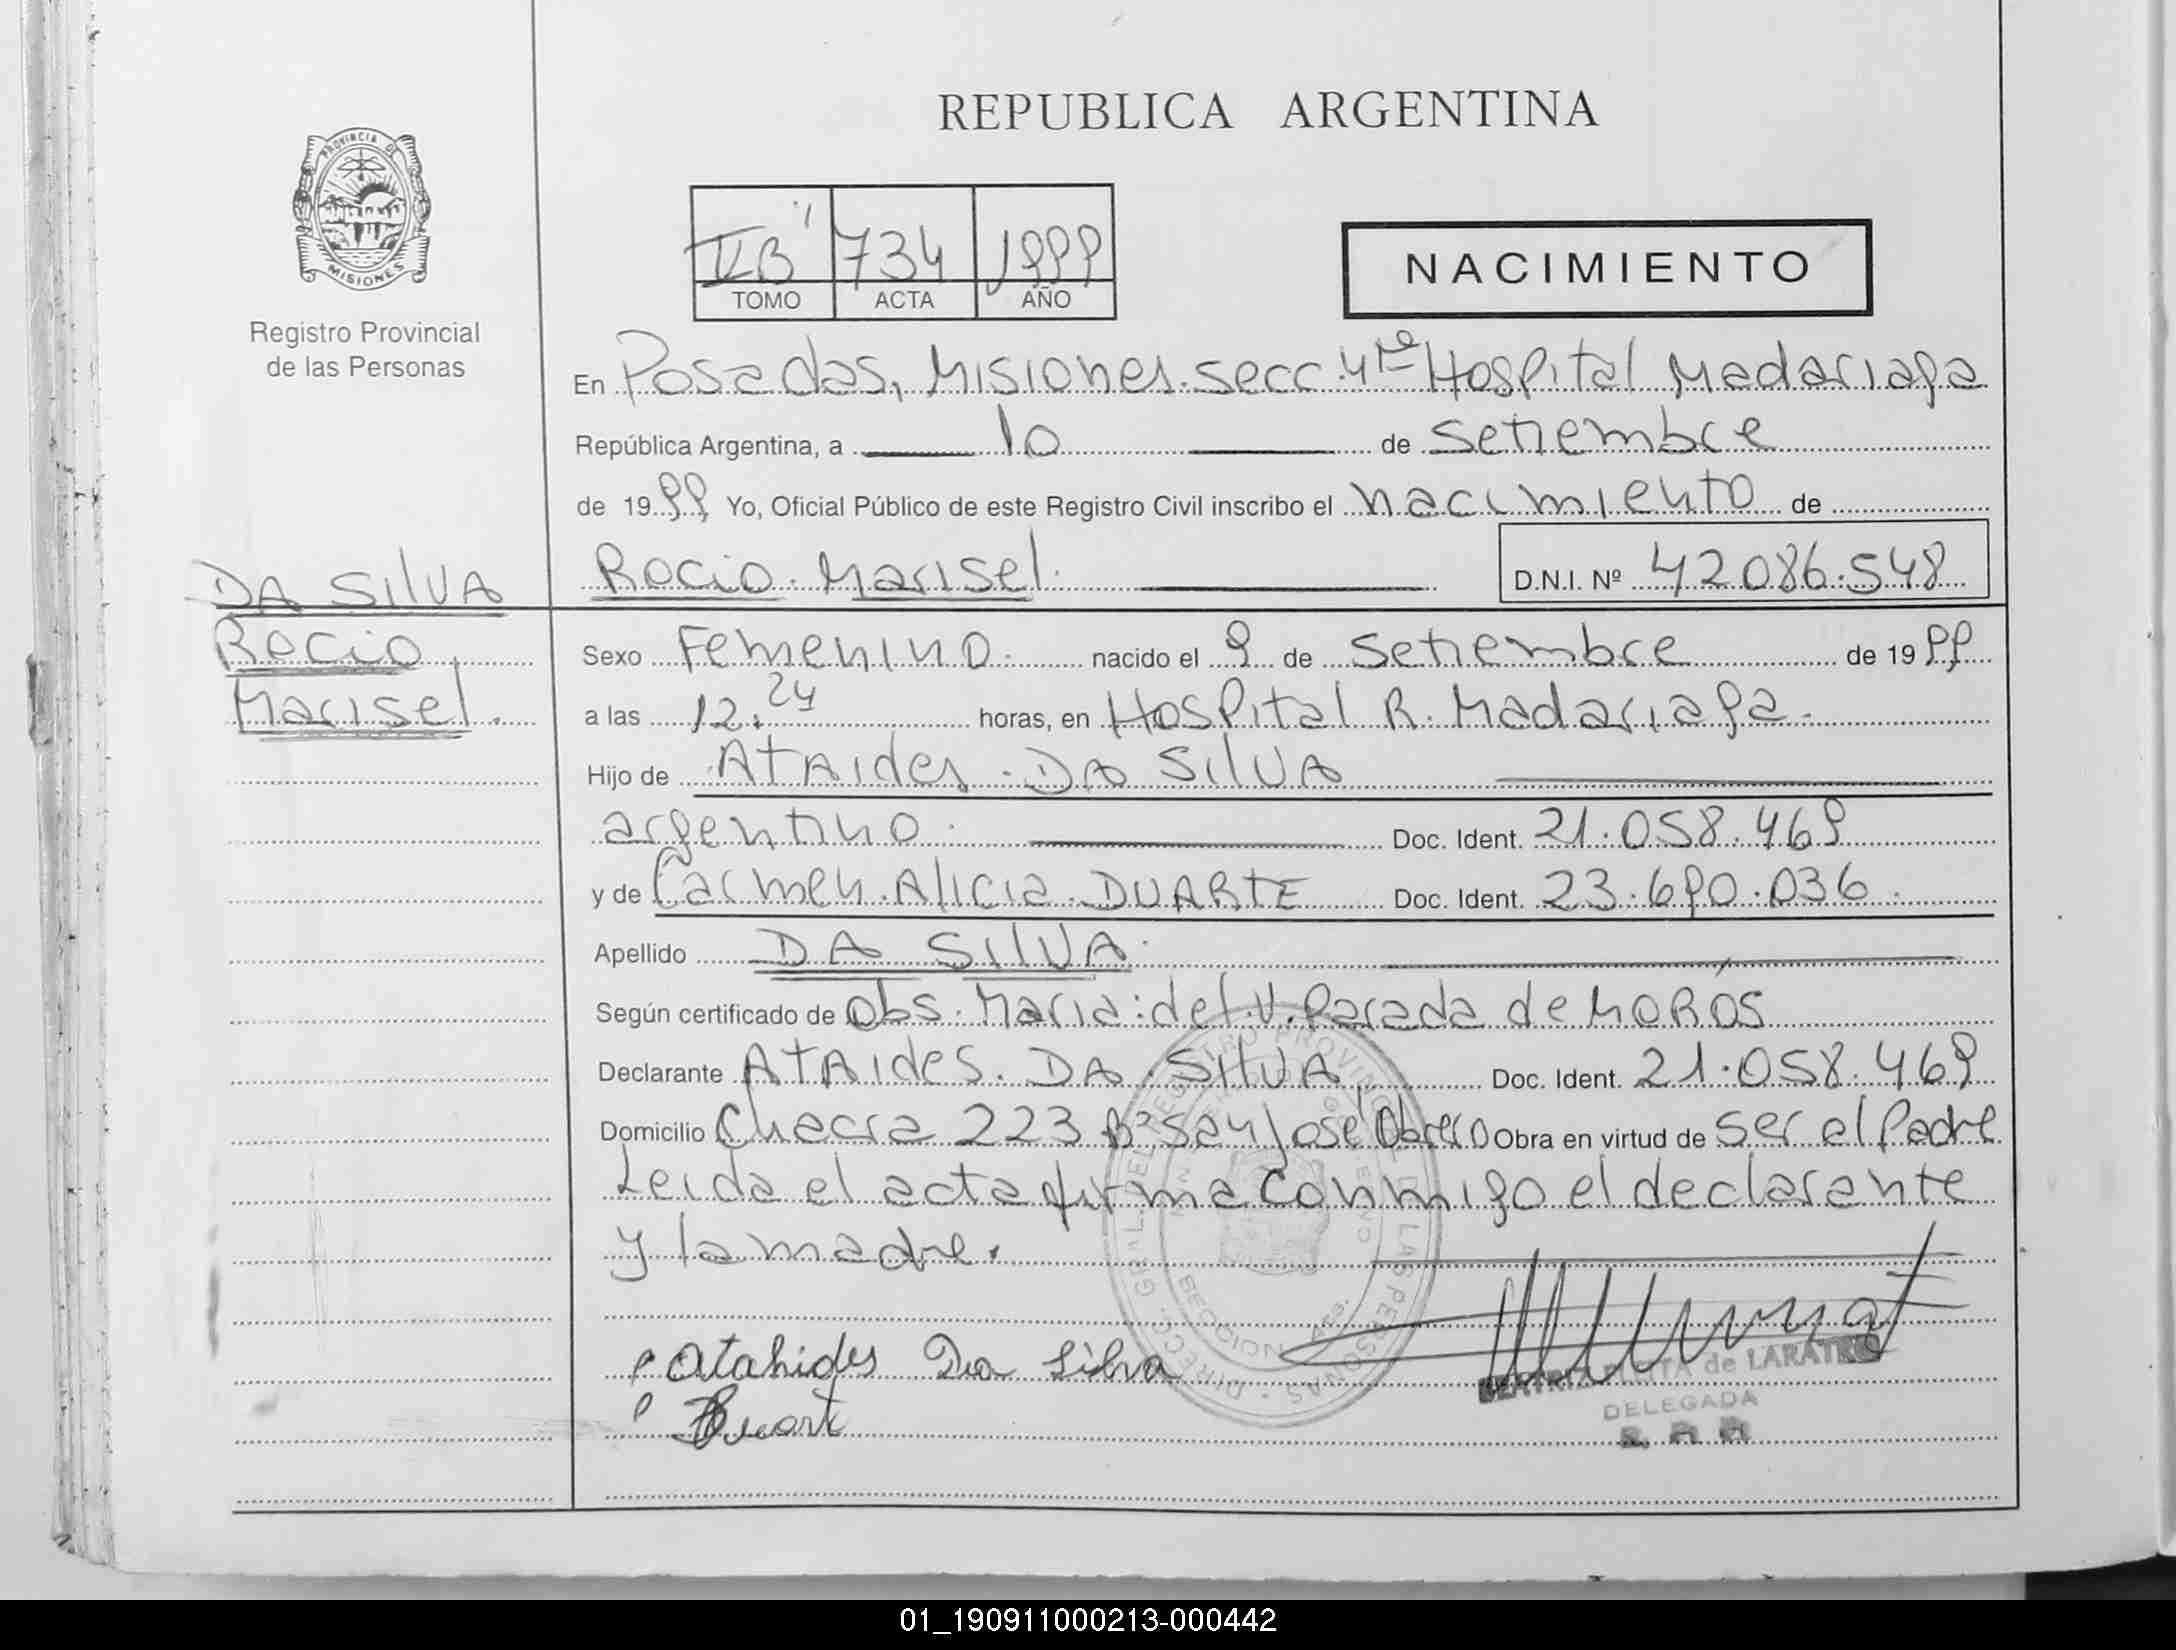 REPUBLICA ARGENTINA
PROVINCIA DE
MISIONES
Registro Provincial
de las Personas
734 1999
TOMO ACTA AÑO
NACIMIENTO
En Posadas, Misiones. secc. 4ta Hospital Madariaga
República Argentina, a 10 de Setiembre
de 1999 Yo, Oficial Público de este Registro Civil inscribo el nacimiento de
Rocio Marisel. D.N.I. Nº 42086.548
DA SILVA
Rocio
Marisel.
Sexo Femenino. nacido el 9 de Setiembre de 1999
a las 12:24 horas, en Hospital R. Madariaga.
Hijo de Ataides DA SILVA
argentino. Doc. Ident. 21.058.469
y de Carmen Alicia DUARTE Doc. Ident. 23.690.036.
Apellido DA SILVA.
Según certificado de Obs. Maria del V. Parada de MOROS
Declarante Ataides DA SILVA Doc. Ident. 21.058.469
Domicilio Chacra 223 Bº San José Obrero Obra en virtud de ser el Padre
Leida el acta firma conmigo el declarante
y la madre.
Atahides Da Silva
de LARATRO
DELEGADA
01_190911000213-000442